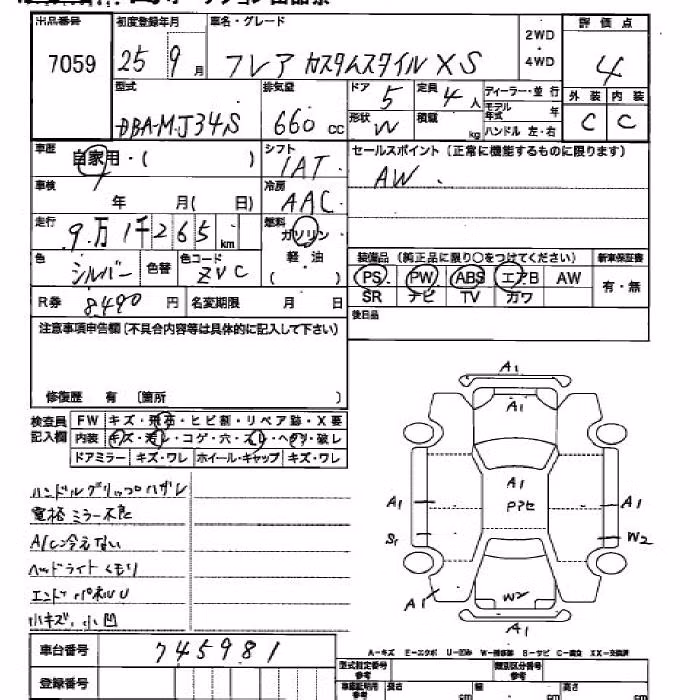 出品番号 初度登録年月 車名・グレード 2WD ・ 4WD 評価点
7059 25 9月 フレア カスタムスタイル XS 4
型式 DBA-MJ34S 排気量 660 cc ドア 5 定員 4人 ディーラー・並行
形状 W 積載 kg モデル年式 年 ハンドル 左・右
外装 内装
C C
車歴 自家用・( ) シフト IAT セールスポイント(正常に機能するものに限ります)
AW.
車検 年 月( 日) 冷房 AAC
走行 9万1千265 km 燃料 ガソリン
軽油
( )
色 シルバー 色替 色コード ZVC
装備品(純正品に限り○をつけてください) 新車保証書
PS PW ABS エアB AW 有・無
SR ナビ TV カワ
R券 8490円 名変期限 月 日
後日品
注意事項申告欄(不具合内容等は具体的に記入して下さい)
修復歴 有 〔箇所 〕
検査員記入欄 FW キズ・飛石・ヒビ割・リペア跡・X要
内装 キズ・汚レ・コゲ・穴・スレ・ヘタリ・破レ
ドアミラー キズ・ワレ ホイール・キャップ キズ・ワレ
ハンドルグリップハガレ
電格ミラー不良
A/C冷えない
ヘッドライトくもり
エンドパネルU
小キズ, 小凹
A1
A1
A1
Pアセ
A1
A1
S1
W2
A1
W2
A1
A-キズ E-エクボ U-凹み W-補修跡 S-サビ C-腐食 XX-交換済
車台番号 745981
登録番号
型式指定番号 参考
類別区分番号 参考
車庫証明用 参考 長さ cm 幅 cm 高さ cm